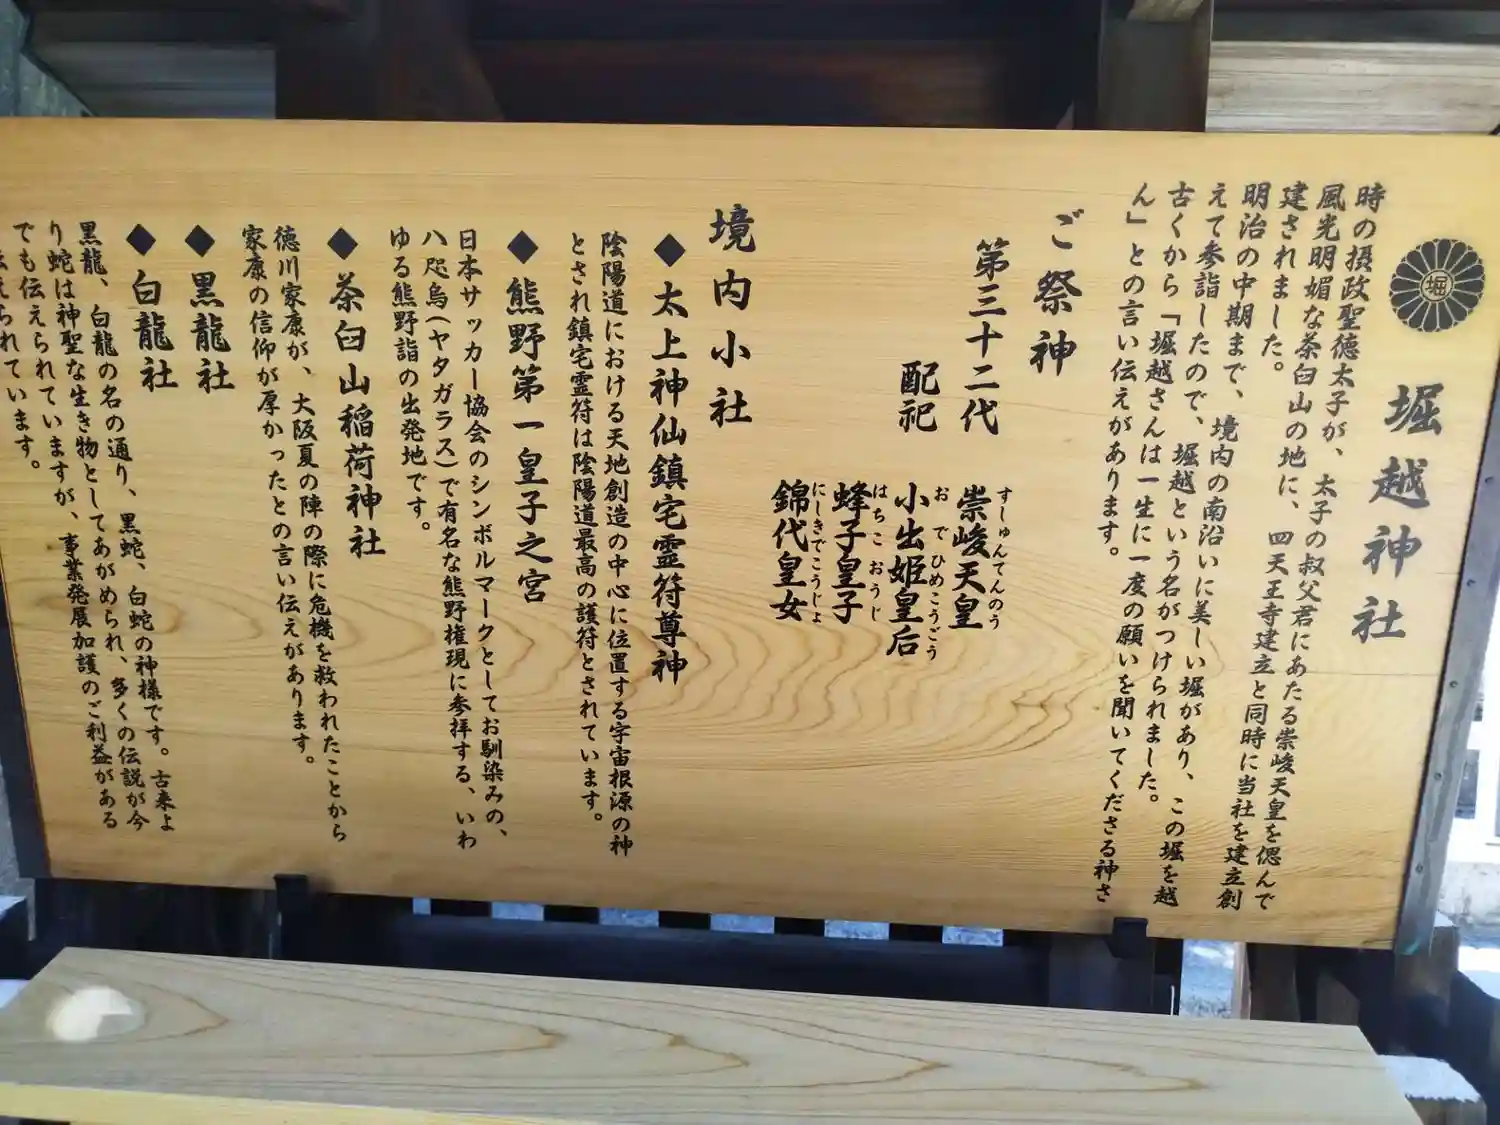 堀
堀越神社
時の摂政聖徳太子が、太子の叔父君にあたる崇峻天皇を偲んで
風光明媚な茶臼山の地に、四天王寺建立と同時に当社を建立創
建されました。
明治の中期まで、境内の南沿いに美しい堀があり、この堀を越
えて参詣したので、堀越という名がつけられました。
古くから「堀越さんは一生に一度の願いを聞いてくださる神さ
ん」との言い伝えがあります。
ご祭神
第三十二代
すしゅんてんのう
崇峻天皇
配祀
おでひめこうごう
小出姫皇后
はちこおうじ
蜂子皇子
にしきでこうじょ
錦代皇女
境内小社
◆太上神仙鎮宅霊符尊神
陰陽道における天地創造の中心に位置する宇宙根源の神
とされ鎮宅霊符は陰陽道最高の護符とされています。
◆熊野第一皇子之宮
日本サッカー協会のシンボルマークとしてお馴染みの、
八咫烏(ヤタガラス)で有名な熊野権現に参拝する、いわ
ゆる熊野詣の出発地です。
◆茶臼山稲荷神社
徳川家康が、大阪夏の陣の際に危機を救われたことから
家康の信仰が厚かったとの言い伝えがあります。
◆黒龍社
◆白龍社
黒龍、白龍の名の通り、黒蛇、白蛇の神様です。古来よ
り蛇は神聖な生き物としてあがめられ、多くの伝説が今
でも伝えられていますが、事業発展加護のご利益がある
伝えられています。